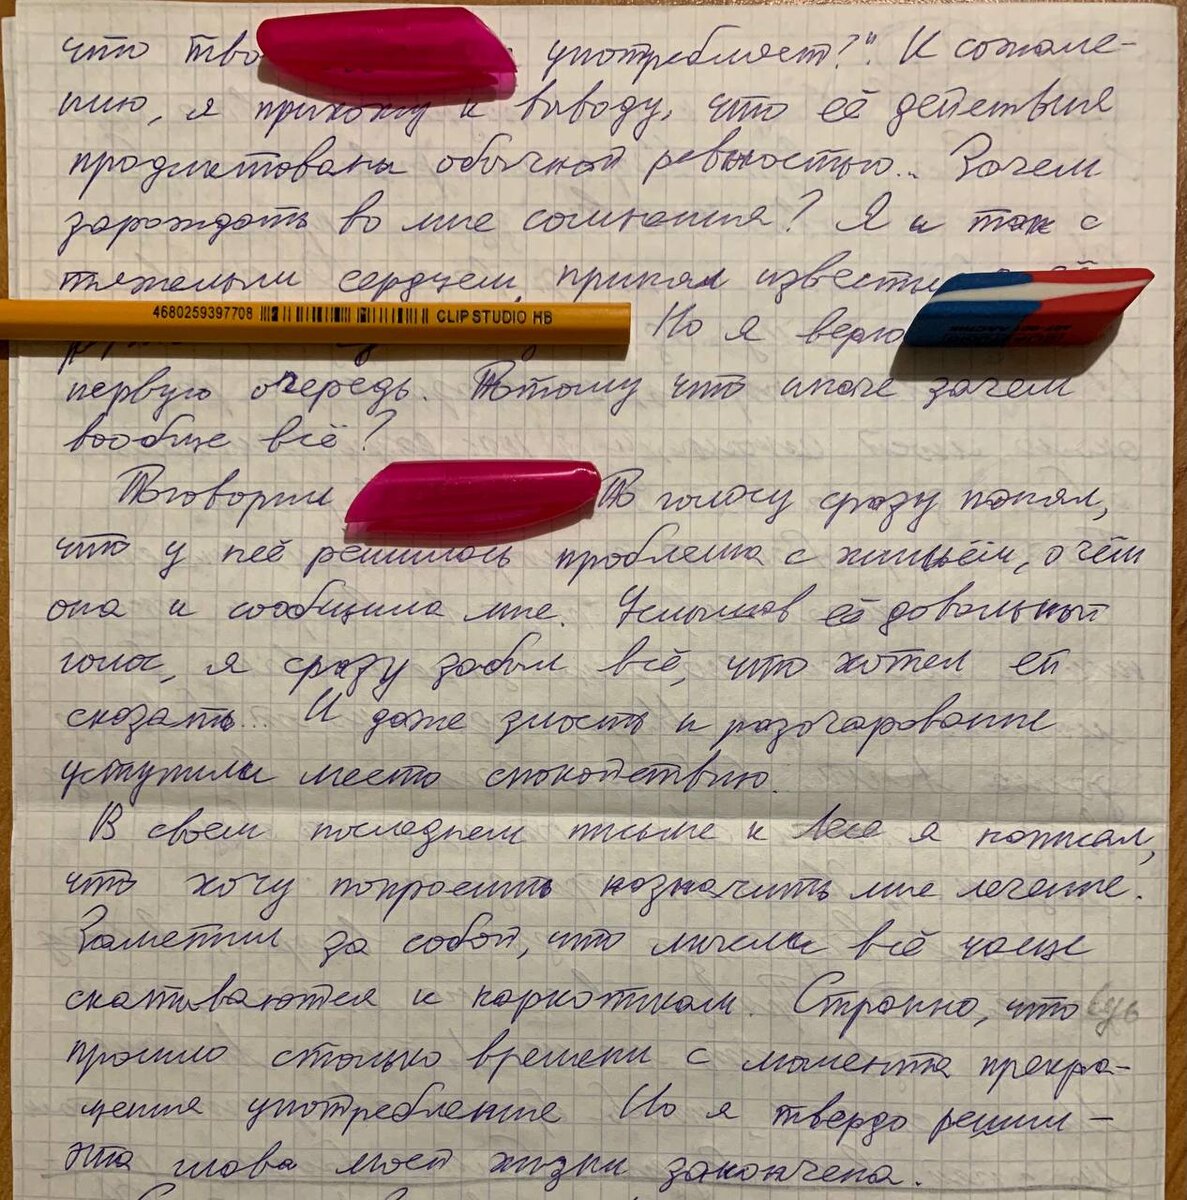 что тво употребляет?". К сожале-
нию, я прихожу к выводу, что её действия
продиктованы обычной ревностью... Зачем
зарождать во мне сомнения? Я и так с
тяжелым сердцем принял
4680259397708 CLIP STUDIO HB
Но я верю
первую очередь. Потому что иначе зачем
вообще всё?
Поговорил По голосу сразу понял,
что у неё решилась проблема с жильём, о чём
она и сообщила мне. Услышав её довольный
голос, я сразу забыл всё, что хотел ей
сказать... И даже злость и разочарование
уступили место спокойствию.
В своем последнем письме к Лесе я написал,
что хочу попросить назначить мне лечение.
Заметил за собой, что мысли всё чаще
скатываются к наркотикам. Странно, что ведь
прошло столько времени с момента прекра-
щения употребления Но я твердо решил -
эта глава моей жизни закончена.